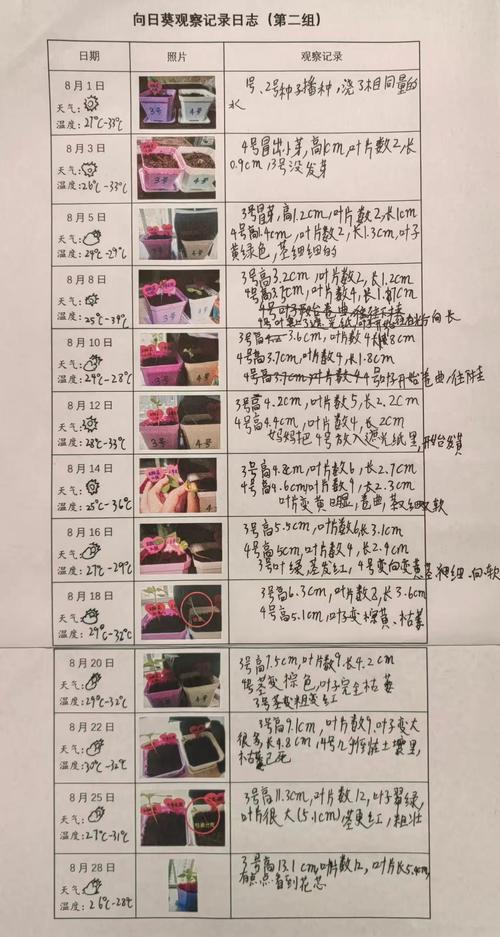 向日葵观察记录日志（第二组）
日期 照片 观察记录
8月1日
天气：
温度：27℃-33℃
3号 4号
号、2号种子播种，浇了相同量的
水
8月3日
天气：
温度：26℃-33℃
3号 4号
4号冒出小芽，高1cm，叶片数2，长
0.9cm，3号没发芽
8月5日
天气：
温度：24℃-29℃
3号 4号
3号冒芽，高1.2cm，叶片数2，长1cm
4号高1.4cm，叶片数2，长1.3cm，叶子
黄绿色，茎细细的
8月8日
天气：
温度：25℃-34℃
3号 4号
3号高3.2cm，叶片数2，长1.2cm
4号高3.5cm，叶片数4，长1.87cm
向长
8月10日
天气：
温度：24℃-28℃
3号高3.6cm，叶片数4长1.8cm
4号高3.7cm，叶片数4，长1.8cm
4号高3.7cm，叶片数4 4号叶子开始卷曲，往下垂
8月12日
天气：
温度：28℃-33℃
3号 4号
3号高4.2cm，叶片数5，长2.2cm
4号高4.4cm，叶片数4，长2cm
妈妈把4号放入遮光纸里，开始发黄
8月14日
天气：
温度：25℃-36℃
3号高4.8cm，叶片数6，长2.7cm
4号高4.6cm叶片数4，长2.3cm
叶片变黄明显，卷曲，茎又细又软
8月16日
天气：
温度：27℃-29℃
3号高5.5cm，叶片数6长3.1cm
4号高5cm，叶片数4，长2.4cm
3号叶绿，茎发红，4号变向变黄，茎细软
8月18日
天气：
温度：29℃-32℃
3号高6.3cm，叶片数8，长3.6cm
4号高5.1cm，叶子变棕黄、枯萎
8月20日
天气：
温度：29℃-32℃
3号高7.5cm，叶片数9，长4.2cm
4号茎变棕色，叶子完全枯萎
3号茎变粗变红
8月22日
天气：
温度：30℃-32℃
3号高9.1cm，叶片数9，叶子变大
很多，长4.8cm，4号几乎倒在土壤里，
枯萎已死
8月25日
天气：
温度：27℃-31℃
3号高11.3cm，叶片数12，叶子翠绿，
叶片很大(5.1cm)茎更红，粗壮
8月28日
天气：
温度：26℃-28℃
3号高13.1cm，叶片数12，叶片长5.4cm，
有点看到花芯